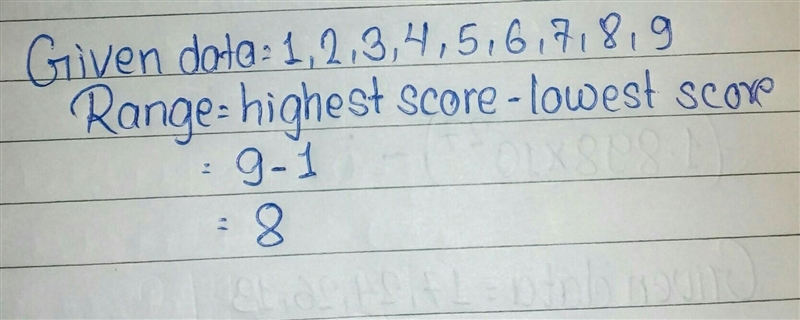 Given data = 1, 2, 3, 4, 5, 6, 7, 8, 9
Range = highest score - lowest score
= 9 - 1
= 8